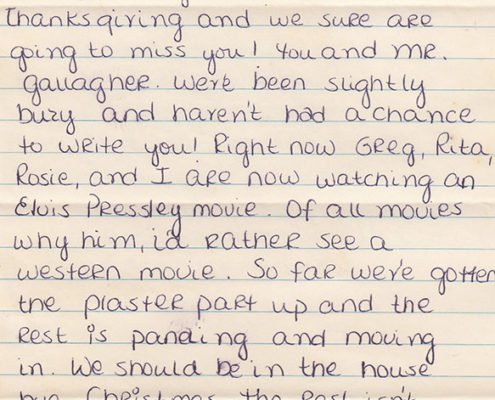 Thanksgiving and we sure are
going to miss you! You and MR.
Gallagher. We've been slightly
buzy and haven't had a chance
to write you! Right now Greg, Rita,
Rosie, and I are now watching an
Elvis Pressley movie. Of all movies
why him, i'd rather see a
western movie. So far we've gotten
the plaster part up and the
rest is paneling and moving
in. We should be in the house
Christmas the rest isn't